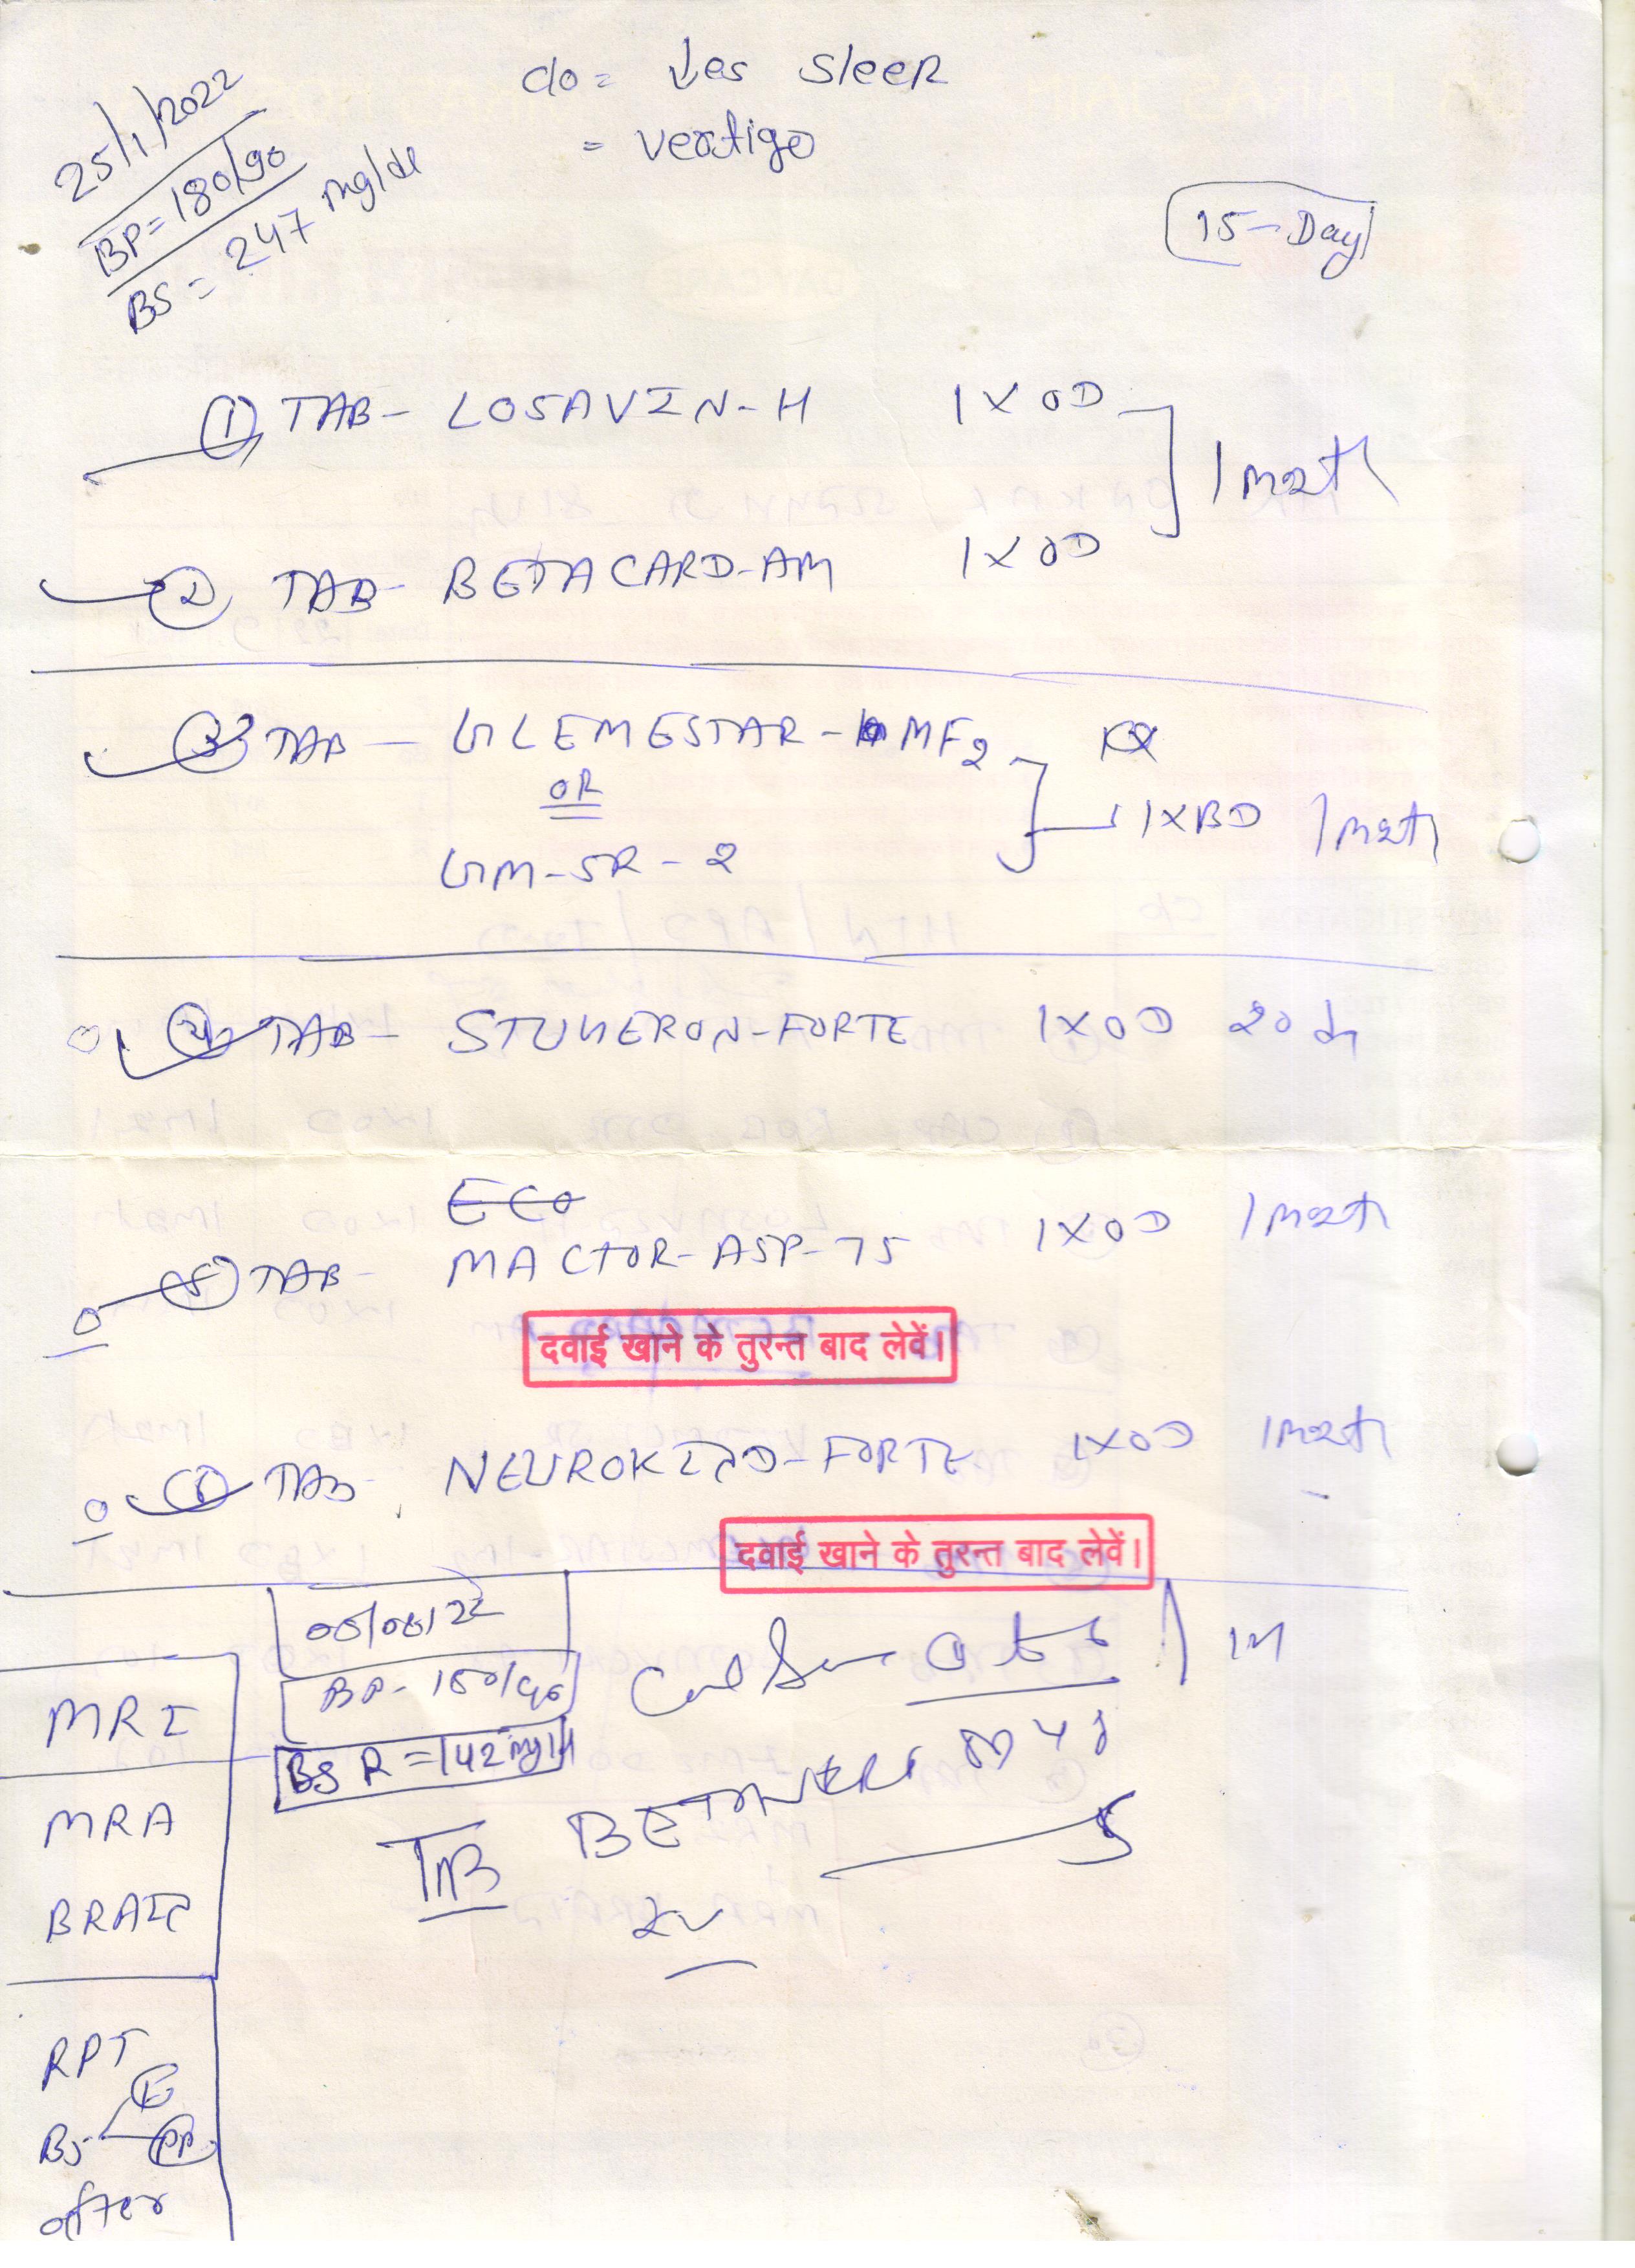 25/1/2022
BP=180/90
BS = 247 mg/dl
c/o = ↓es SleeP
= vertigo
15-Day
① TAB- LOSAVIN-H 1XOD
1 month
② TAB- BETACARD-AM 1XOD
③ TAB- GLEMESTAR-MF2
OR
1XBD 1 month
GM-SR-2
④ TAB- STUGERON-FORTE 1XOD 20 d
Eco
⑤ TAB- MACTOR-ASP-75 1XOD 1 month
दवाई खाने के तुरन्त बाद लेवें।
⑥ TAB- NEUROKIND-FORTE 1XOD 1 month
दवाई खाने के तुरन्त बाद लेवें।
BP- 150/90
BS R = 142 mg/dl
TAB
MRI
MRA
BRAIN
RPT
BS F
PP
after